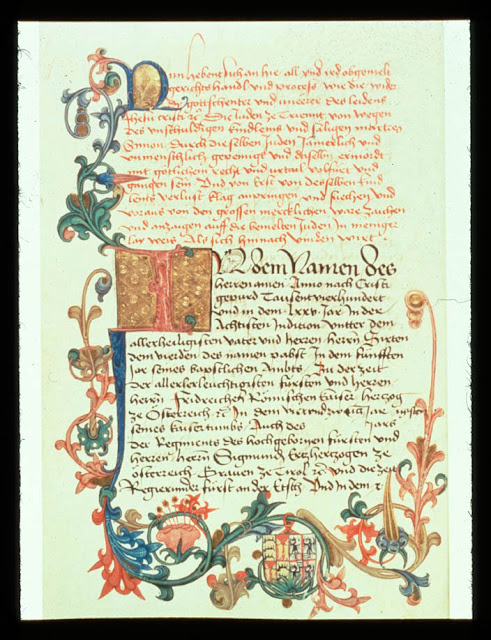 Nun hebent sich an hie all und yed obgemelt
gerichtshandl und process wie die wider
die gottschender und uneerer des leidens
Jhesu cristi ꝛc Die Juden ze Trient von wegen
des unschuldigen kindleins und säligen martrer
Simon durch dieselben Juden Jämerlich und
unmenschlich gepeinigt und daselbs ermordt
mit götlichem recht und urtail volfürt und
gangen sein Und von erst von desselben kind
lents verlust klag anpringen und suechen und
voraus von den grossen mercklichen warzaichen
und anzaigen auff die bemelten Juden in meniger
lay weis Als sich hinnach vinden wirt
IN dem Namen des
herren amen Anno nach Cristi
gepurd Tausent vierhundert
Und in dem lxxv Jar In der
Achtisten Indition Untter dem
allerheiligisten vater und herren herrn Sixten
dem vierden des namen pabst In dem fünfften
Jar seines bapstlichen Ambts Zu der zeit
der allerdurleuchtigisten fürsten und herren
herrn Fridreichen Römischen kaiser hertzog
ze Österreich ꝛc In dem
seines kaisertumbs Auch des Jars
der Regiments des hochgebornen fürsten und
herren herrn Sigmund Ertzhertzogen ze
Österreich Graven ze Tirol ꝛc und die zeit
Regierunder fürst an der Etsch Und in dem